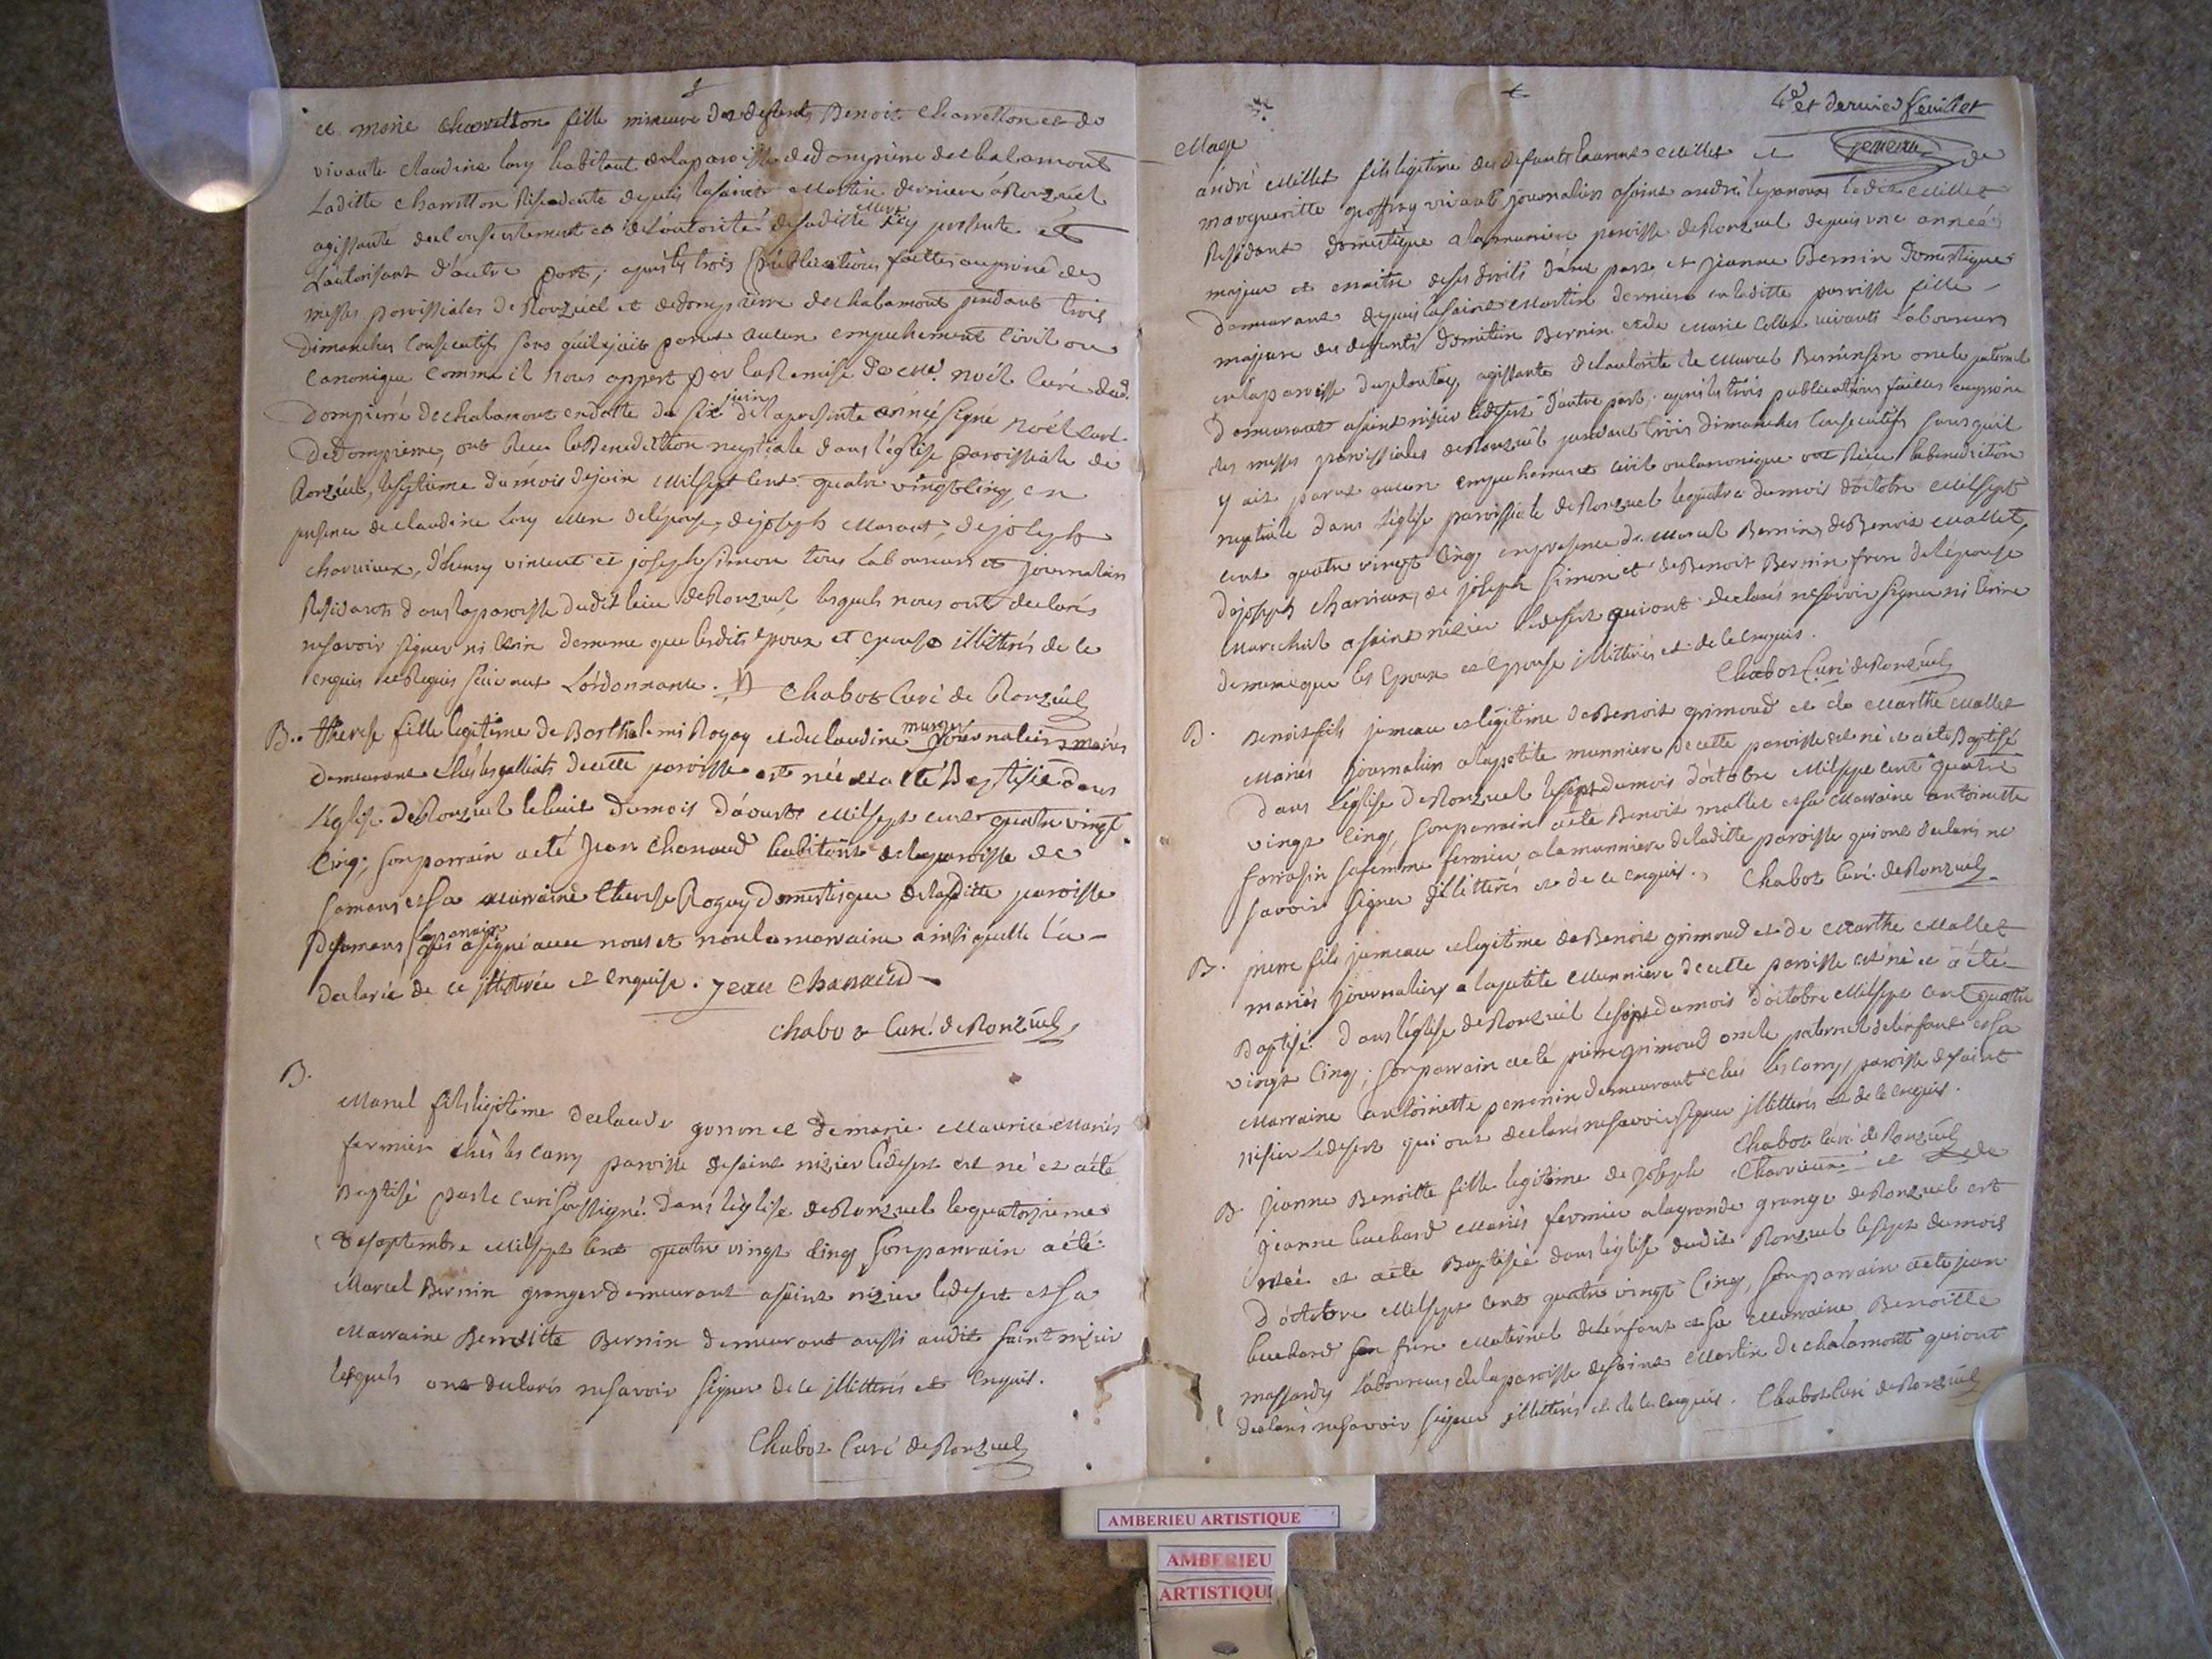 et marie charretton fille mineure des defunt Benoit charretton et de
vivante claudine lory habitant de la paroisse de dompierre de chalamont
laditte charretton Residante depuis la saint Martin derniere à Ronzuel
agissante du consentement et de l'autorité de saditte mere icy presente et
L'autorisant d'autre part; après les trois publications faittes au prône des
messes paroissiales de Ronzuel et de dompierre de chalamont pendant trois
dimanches consecutifs sans qu'il y ait parut aucun empechement civil ou
canonique comme il nous appert par la Remise de mr. noël curé dud.
dompierre de chalamont en datte du six juin de la presente année signé noël curé
de dompierre, ont Recu la Benediction nuptiale dans l'église paroissiale de
Ronzuel, le septieme du mois de juin Mil sept cent quatre vingt cinq, en
presence de claudine lory mere de l'épouse, de joseph Marant, de joseph
charvieux, d'henry vincent et joseph simon tous laboureurs et journaliers
Residants dans la paroisse dudit lieu de Ronzuel, lesquels nous ont declarés
ne savoir signer ni ecrire de meme que lesdits epoux et epouse illitterés de ce
enquis et Requis suivant L'ordonnance. Chabot Curé de Ronzuel
B. therese fille legitime de Barthelemi Rogay et de claudine journaliers mariés
demeurant chés les galliats de cette paroisse est née et a été Baptisée dans
L'église de Ronzuel le huit du mois d'aoust Mil sept cent quatre vingt
cinq; son parrain a été Jean Chanaud habitant de la paroisse de
samans et sa marraine therese Rogay domestique de laditte paroisse
de samans, le parrain a signé avec nous et non la marraine ainsi qu'elle l'a
declarée de ce illiterée et enquise. Jean Chanaud
Chabot Curé de Ronzuel
B.
Marcel fils legitime de claude gonon et de marie Maurice Mariés
fermier chés les carry paroisse de saint nizier le desert est né et a été
Baptisé par le curé soussigné dans l'église de Ronzuel le quatorzieme
de septembre Mil sept cent quatre vingt cinq, son parrain a été
Marcel Bernin granger demeurant a saint nizier le desert et sa
Marraine Benoitte Bernin demeurant aussi audit saint nizier
lesquels ont declarés ne savoir signer de ce illitterés et enquis.
Chabot Curé de Ronzuel
4e et dernier feuillet
Mage
andré Millet fils legitime des defunts laurent Millet et de
margueritte geoffray vivante journaliers a saint andré le panoux ledit Millet
Residant domestique a la munniere paroisse de Ronzuel depuis une année
majeur et maitre de ses droits d'une part et jeanne Bernin domestique
demeurant depuis la saint Martin derniere en laditte paroisse fille
majeure des defunts Bernin et de Marie Collet vivants laboureurs
en la paroisse du plantay, agissante de l'autorité de Marcel Bernin son oncle paternel
demeurant a saint nizier le desert d'autre part; après les trois publications faittes au prône
des messes paroissiales de Ronzuel pendant trois dimanches consecutifs sans qu'il
y ait parut aucun empechement civil ou canonique ont Recu la benediction
nuptiale dans l'église paroissiale de Ronzuel le quatre du mois d'octobre Mil sept
cent quatre vingt cinq, en presence de Marcel Bernin, de Benoit Mallet,
de joseph charvieux, de joseph simon et de Benoit Bernin frere de l'épouse
Marechal a saint nizier le desert qui ont declarés ne savoir signer ni ecrire
de meme que les epoux et epouse illitterés et de ce enquis.
Chabot Curé de Ronzuel
B. Benoit fils jumeau et legitime de Benoit grimoud et de Marthe Mallet
Mariés journaliers a la petite munniere de cette paroisse est né et a été Baptisé
dans l'église de Ronzuel le sept du mois d'octobre Mil sept cent quatre
vingt cinq, son parrain a été Benoit mallet et sa Marraine antoinette
sarrasin sa femme fermier a la munniere de laditte paroisse qui ont declarés ne
savoir signer illitterés et de ce enquis. Chabot Curé de Ronzuel
B. pierre fils jumeau et legitime de Benoit grimoud et de Marthe Mallet
mariés journaliers a la petite Munniere de cette paroisse est né et a été
Baptisé dans l'église de Ronzuel le sept du mois d'octobre Mil sept cent quatre
vingt cinq; son parrain a été pierre grimoud oncle paternel de l'enfant et sa
Marraine antoinette perenin demeurant chés les carry, paroisse de saint
nizier le desert qui ont declarés ne savoir signer illitterés et de ce enquis.
Chabot Curé de Ronzuel
B. Jeanne Benoitte fille legitime de Joseph Charvieux et de
Jeanne buchard Mariés fermier a la grande grange de Ronzuel est
née et a été Baptisée dans l'église dudit Ronzuel le sept du mois
d'octobre Mil sept cent quatre vingt cinq, son parrain a été jean
buchard frere Maternel de l'enfant et sa Marraine Benoitte
massardy laboureurs de la paroisse de saint Martin de chalamont qui ont
declarés ne savoir signer illitterés et de ce enquis. Chabot Curé de Ronzuel
AMBERIEU ARTISTIQUE
AMBERIEU
ARTISTIQU